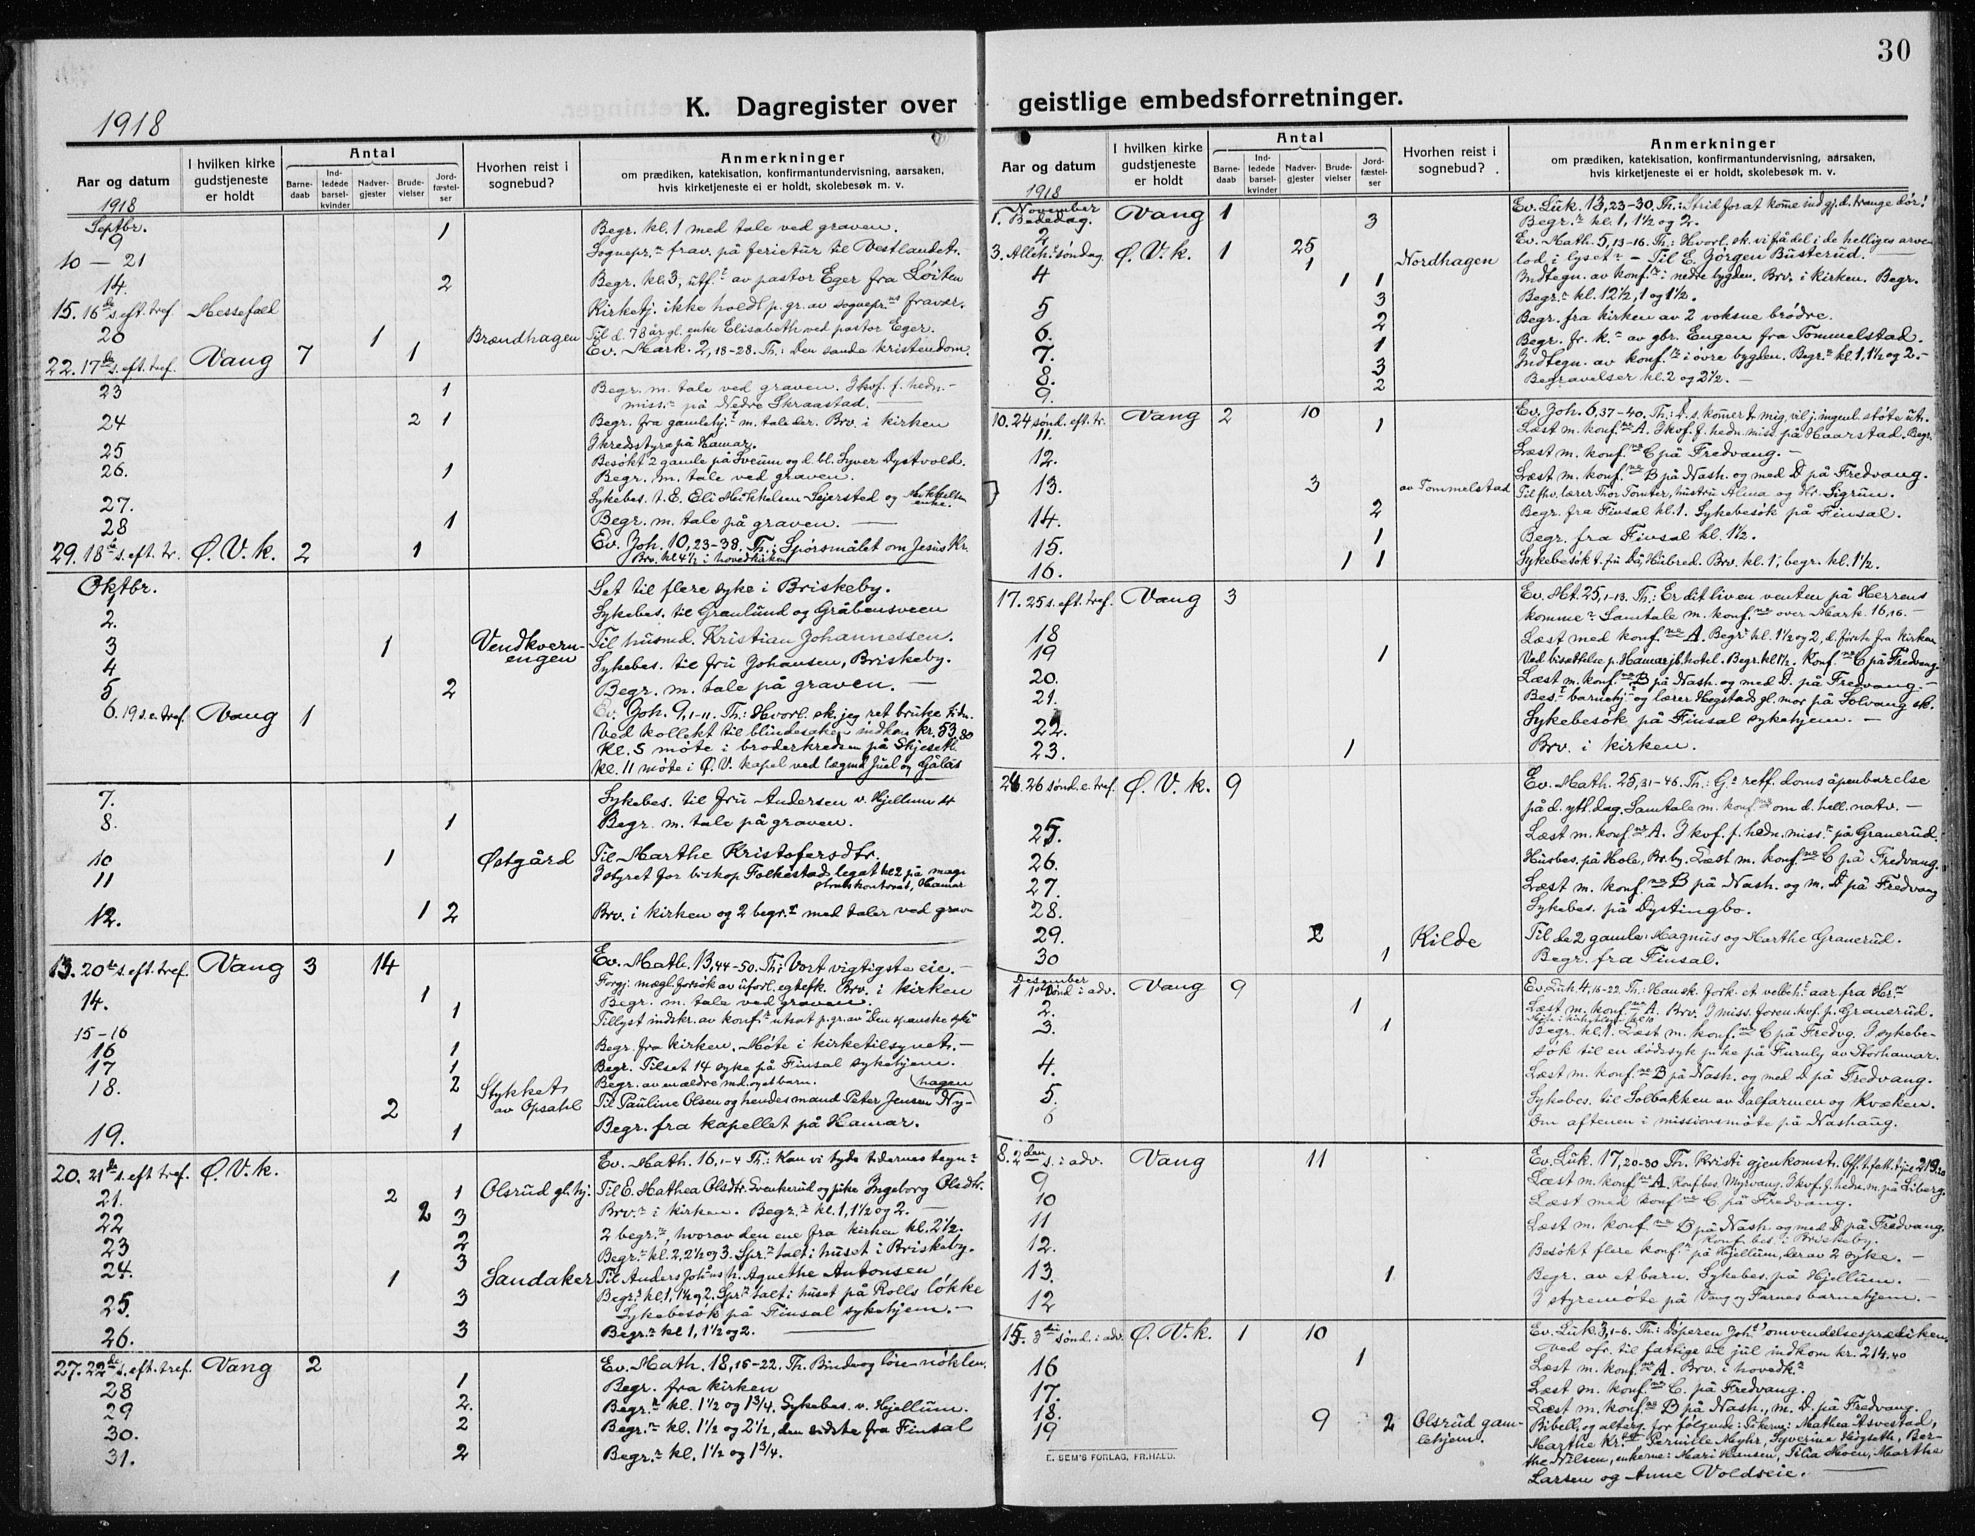 30
K. Dagregister over geistlige embedsforretninger.
1918
Aar og datum
I hvilken kirke gudstjeneste er holdt
Antal
Barnedaab
Indledede barselkvinder
Nadvergjester
Brudevielser
Jordfæstelser
Hvorhen reist i sognebud?
Anmerkninger
om prædiken, katekisation, konfirmantundervisning, aarsaken,
hvis kirketjeneste ei er holdt, skolebesøk m. v.
1918
Septbr.
9 1 Begr. kl. 1 med tale ved graven.
10 — 21 Sognepr. frav. på ferietur til Vestlandet.
14. 2 Begr. kl. 3, utf. av pastor Eger fra Löiten
15. 16de s. eft. tref. Messefald Kirketj. ikke holdt p. gr. av sognepr.ns fravær.
20 1 Brændhagen Til d. 78 år gl. enke Elisabeth ved pastor Eger.
22. 17de s. eft. tref. Vang 7 1 Ev. Mark. 2, 18-28. Th.: Den sande kristendom.
23 1 Begr. m. tale ved graven. I kvf. f. hedn.
miss. på Nedre Skraastad.
24 2 1 Begr. fra gamlehj. m. tale der. Brv. i kirken
25 I kredsstyre på Hamar.
26. 1 Besökt 2 gamle på Sveum og d. bl. Syver Dystvold.
Begr. m. tale ved graven.
27. Sykebes. t. E. Eli Mikkelsen Sejersted og Mikkelsen enke.
28 1 Begr. m. tale på graven.
29. 18de s. eft. tr. Ø. V. k. 2 1 Ev. Joh. 10, 23-38. Th.: Spörsmålet om Jesus Kr.
Brv. kl. 4½ i hovedkirken
Oktbr.
1 Set til flere syke i Briskeby.
2. Sykebes. til Granlund og Gråbensveen
3 1 Vendkvern-engen Til husmd. Kristian Johannessen.
4 Sykebes. til fru Johansen, Briskeby.
5 2 Begr. m. tale på graven.
6. 19 s. e. tref. Vang 1 Ev. Joh. 9, 1-11. Th.: Hvorl. sk. jeg ret bruke tiden.
Ved kollekt til blindesaken indkom kr. 53,80
Kl. 5 möte i broderkredsen på Skjeseth
Kl. 11 möte i Ø. V. kapel ved lægmd. Juel og Gålås
7. Sykebes. til fru Andersen v. Hjellum st
8. 1 Begr. m. tale på graven.
10 1 Østgård Til Marthe Kristofersdtr.
11 I styret for biskop Folkestads legat kl. 2 på magi-
stratskontoret, Hamar
12. 1 2 Brv. i kirken og 2 begr. med taler ved grav
13. 20de s. eft. tref. Vang 3 14 Ev. Math. 13, 44-50. Th.: Vort vigtigste eie.
Forgj. mægl. forsök av uforl. egtefk. Brv. i kirken
14. 1 Begr. m. tale ved graven.
1
15-16 Tillyst indskr. av konf. utsat p. gr. av "Den spanske syke"
16 1 Begr. fra kirken. Möte i kirketilsynet.
17 1 Begr. Tilset 14 syke på Finsal sykehjem.
18. 2 2 Stykket av Opsahl Begr. av en ældre md. og et barn.
Til Pauline Olsen og hendes mand Peter Jensen Ny-hagen
19. 1 Begr. fra kapellet på Hamar.
20. 21de s. eft. tref. Ø. V. k. Ev. Math. 16, 1-4 Th.: Kan vi tyde tidernes tegn?
21. 2 1 Olsrud gl. hj. Til E. Mathea Olsdtr. Svenkerud og pike Ingeborg Olsdtr.
22 2 3 Brv. i kirken. Begr. kl. 1, 1½ og 2.
23 2 2 begr., hvorav den ene fra kirken kl. 2½.
24. 1 3 Sandaker Begr. kl. 2, 2½ og 3. Spr. talt i huset i Briskeby.
Til Anders Johans h. Agnethe Antonsen
25. 3 Begr. kl. 1, 1½ og 2. Spr. talt i huset på Rolls lökke
Sykebesök på Finsal sykehjem.
26. 3 Begr. kl 1, 1½ og 2.
27. 22de s. eft. tref. Vang 2 Ev. Math. 18, 15-22. Th. Binde og löse-nöklen.
28 1 Begr. fra kirken
29 2. Begr. kl. 1½ og 1¾. Sykebes. v. Hjellum.
30. 2 Begr. kl. 1½ og 2½, den sidste fra Finsal
31. 2 Begr. kl. 1½ og 1¾.
Aar og datum
I hvilken kirke gudstjeneste er holdt
Antal
Barnedaab
Indledede barselkvinder
Nadvergjester
Brudevielser
Jordfæstelser
Hvorhen reist i sognebud?
Anmerkninger
om prædiken, katekisation, konfirmantundervisning, aarsaken,
hvis kirketjeneste ei er holdt, skolebesøk m. v.
1918
November
1. Bededag. Vang 1 3 Ev. Luk. 13, 23-30. Th.: Strid for at komme ind gj. d. trange dör!
2 Begr. kl. 1, 1½ og 2.
3. Alleh. söndag. Ø. V. k. 1 25 1 Nordhagen Ev. Math. 5, 13-16. Th.: Hvorl. sk. vi få del i de helliges arve-
lod i lyset? – Til E. Jörgen Busterud.
4 1 1 Indtegn. av konf. i nedre bygden. Brv. i kirken. Begr.
5 3 Begr. kl. 12½, 1 og 1½.
6. 2 Begr. fra kirken av 2 voksne brödre.
7. 1 Begr. fr. k. av gbr. Engen fra Tommelstad.
8. 3 Indtegn. av konf. i övre bygden. Begr. kl. 1, 1½ og 2.
9. 2 Begravelser kl. 2 og 2½.
10. 24 sönd. eft. tr. Vang 2 10 Ev. Joh. 6, 37-40. Th.: D. s. kommer t. mig, vil j. ingenl. stöte ut.
11. 1 Læst m. konf.ne A. I kvf. f. hedn. miss. på Haarstad. Begr.
12. Læst m. konf.ne C på Fredvang.
13. 3 av Tommelstad Læst m. konf.ne B på Nash. og med D på Fredvang.
Til fhv. lærer Thor Tomter, hustru Alma og dtr. Sigrun.
14. 2 Begr. fra Finsal kl. 1. Sykebesök på Finsal.
15. 1 Begr. fra Finsal kl. 1½.
16. 1 1 Sykebesök t. fru Då, Hubred. Brv. kl. 1, begr. kl. 1½.
17. 25 s. eft. tref. Vang 3 Ev. Mt. 25, 1-13. Th.: Er dit liv en venten på Herrens
komme? Samtale m. konf.ne over Mark. 16, 16.
18 Læst med konf.ne A. Begr. kl. 1½ og 2, d. förste fra kirken
19 1 Ved bisættelse p. Hamar jb. hotel. Begr. kl. 1½. Konf.ne C på Fredvang.
20. Læst m. konf.ne B på Nash. og med D. på Fredvang.
21. Bes. barnehj. og lærer Hogstad gl. mor på Solvang sk.
22. Sykebesök på Finsal sykehjem.
23. 1 Brv. i kirken.
24. 26 sönd. e. tref. Ø. V. k. 9 Ev. Math. 25, 31-46. Th.: Gs retf. doms åpenbarelse
på d. ytt. dag. Samtale m. konf.ne om d. hell. natv.
25. Læst m. konf.ne A. I kvf. f. hedn. miss. på Granerud.
26. Husbes. på Hole, Br. by. Læst m. konf.ne C på Fredvang.
27. Læst m. konf.ne B på Nash. og m. D på Fredvang
28. Sykebes. på Dystingbo.
29. 2 Kilde Til de 2 gamle: Magnus og Marthe Granerud.
30 1 Begr. fra Finsal.
Desember
1 1ste sönd i adv. Vang 9 Ev. Luk. 4, 16-22. Th.: Han sk. fork. et velbeh. aar fra Hr.
2. 1 Læst m. konf.ne A. Brv. I miss. foren. kvf. p. Granerud.
3. 1 Begr. kl. 1. Læst m. konf.ne C på Fredvg. I sykebe-
sök til en dödssyk pike på Furuly av Storhamar.
4. Læst m. konf.ne B på Nash. og med D på Fredvang.
5. Sykebes. til Solbakken av Dalfarmen og Kvæken.
6 Om aftenen i missionsmöte på Nashaug.
8. 2den s. i adv. Vang 11 Ev. Luk. 17, 20-30 Th. Kristi gjenkomst. Off. t. fatt. t. jul 219.10
9 Læst m. konf.ne A. Konf bes. Myrvang. I kvf. f. hedn. m. på Liberg.
10 Læst med konf.ne C. på Fredvang.
11 Læst m. konf.ne B på Nash. og med D på Fredvang.
Konf. bes. i Briskeby.
12. Besökt flere konf. på Hjellum, derav 2 syke.
13. 1 Begr. av et barn. Sykebes. på Hjellum.
12 I styremöte på Vang og Furnes barnehjem.
15. 3die sönd. i adv. Ø. V. k. 1 10 Ev. Luk. 3, 1-6. Th.: Döperen Joh.' omvendelsesprædiken.
Ved ofr. til fattige til jul indkom kr. 214.40
16 1 Læst m. konf.ne A. Brv. i hovedk.
17. Læst m. konf.ne C. på Fredvang.
18. Læst m. konf.ne B på Nash., m. D. på Fredvang.
19 9 2 Olsrud gam-lehjem. Bibell. og alterg. for fölgende: Pikerne: Mathea Åsvestad,
Marthe Kr. Pernille Myhr, Syverine Högseth, Ber-
the Nilsen, enkerne: Mari Hansen, Tilia Moen, Marthe
Larsen og Anne Voldseie.
E. SEM'S FORLAG, FR.HALD.